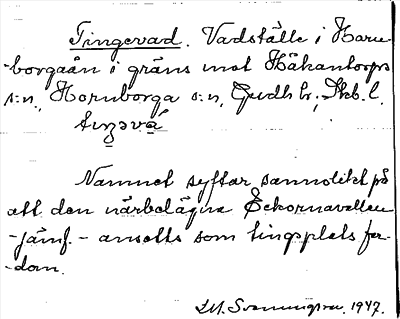 Tingevad. Vadställe i Horn-
borgaån i gräns mot Håkantorps
s:n, Hornborga s:n, Gudh hr; Skb. l.
tiŋəvá
Namnet syftar sannolikt på
att den närbelägna Ekornavallen
- jämf. - ansetts som tingsplats for-
dom.
1947.